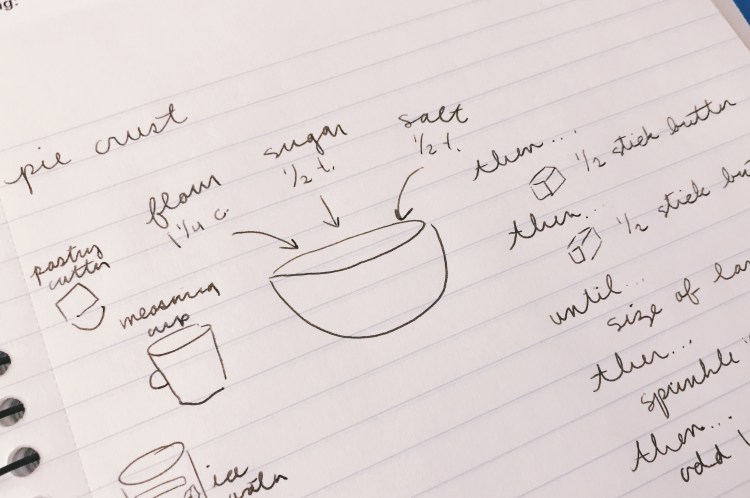 ng:
pie crust
flour
1 1/4 c.
sugar
1/2 t.
salt
1/2 t.
pastry
cutter
measuring
cup
ice
water
then...
1/2 stick butter
then...
1/2 stick
until...
size of
then...
sprinkle
then...
add